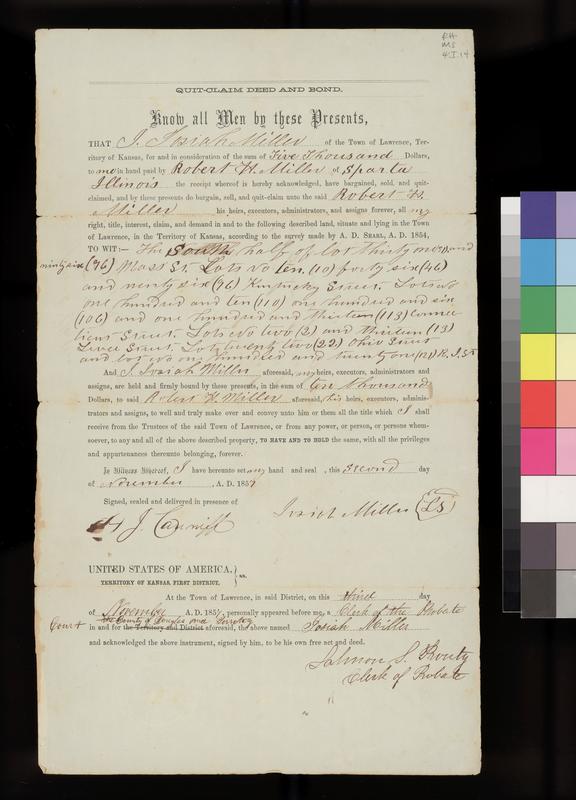 RH
MS
QUIT-CLAIM DEED AND BOND.
Know all Men by these Presents,
THAT I. Josiah Miller of the Town of Lawrence, Ter-
ritory of Kansas, for and in consideration of the sum of Five Thousand Dollars,
to me in hand paid by Robert H. Miller of Sparta
Illinois the receipt whereof is hereby acknowledged, have bargained, sold, and quit-
claimed, and by these presents do bargain, sell, and quit-claim unto the said Robert H.
Miller his heirs, executors, administrators, and assigns forever, all my
right, title, interest, claim, and demand in and to the following described land, situate and lying in the Town
of Lawrence, in the Territory of Kansas, according to the survey made by A. D. SEARL, A. D. 1854,
TO WIT:— The South half of lot thirty and
ninty six (96) Mass St. Lots No Ten (10) forty six (46)
and ninty six (96) Kentucky Street. Lots No
one hundred and ten (110) one hundred and six
(106) and one hundred and thirteen (113) Connec
ticut Street. Lots No two (2) and thirteen (13)
Levee Street. Lot twenty two (22) Ohio Street
and lot No one hundred and twenty one (121) R. I. St
And I Josiah Miller aforesaid, my heirs, executors, administrators and
assigns, are held and firmly bound by these presents, in the sum of ten thousand
Dollars, to said Robert H. Miller aforesaid, his heirs, executors, adminis-
trators and assigns, to well and truly make over and convey unto him or them all the title which I shall
receive from the Trustees of the said Town of Lawrence, or from any power, or person, or persons whom-
soever, to any and all of the above described property, TO HAVE AND TO HOLD the same, with all the privileges
and appurtenances thereunto belonging, forever.
In Witness Whereof, I have hereunto set my hand and seal, this second day
of November, A. D. 1857
Signed, sealed and delivered in presence of
Josiah Miller (LS)
UNITED STATES OF AMERICA, } ss.
TERRITORY OF KANSAS, FIRST DISTRICT,
At the Town of Lawrence, in said District, on this third day
of November A. D. 1857, personally appeared before me, a Clerk of the Probate
the County of Douglas and Territory
Court in and for the Territory and District aforesaid, the above named Josiah Miller
and acknowledged the above instrument, signed by him, to be his own free act and deed.
Salmon S. Prouty
Clerk of Probate